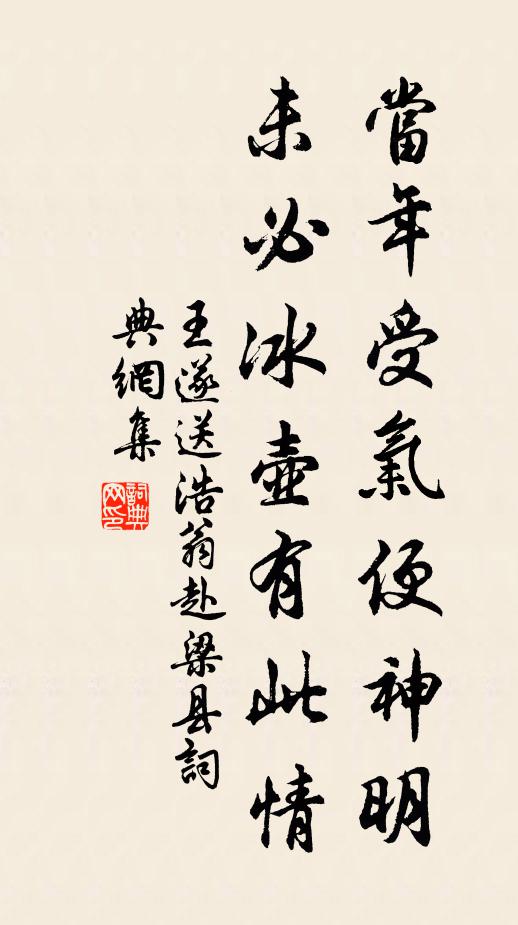 當年受氣便神明
未必冰壺有此情
王遂送浩翁赴梁县詞
典網集
詞典网印